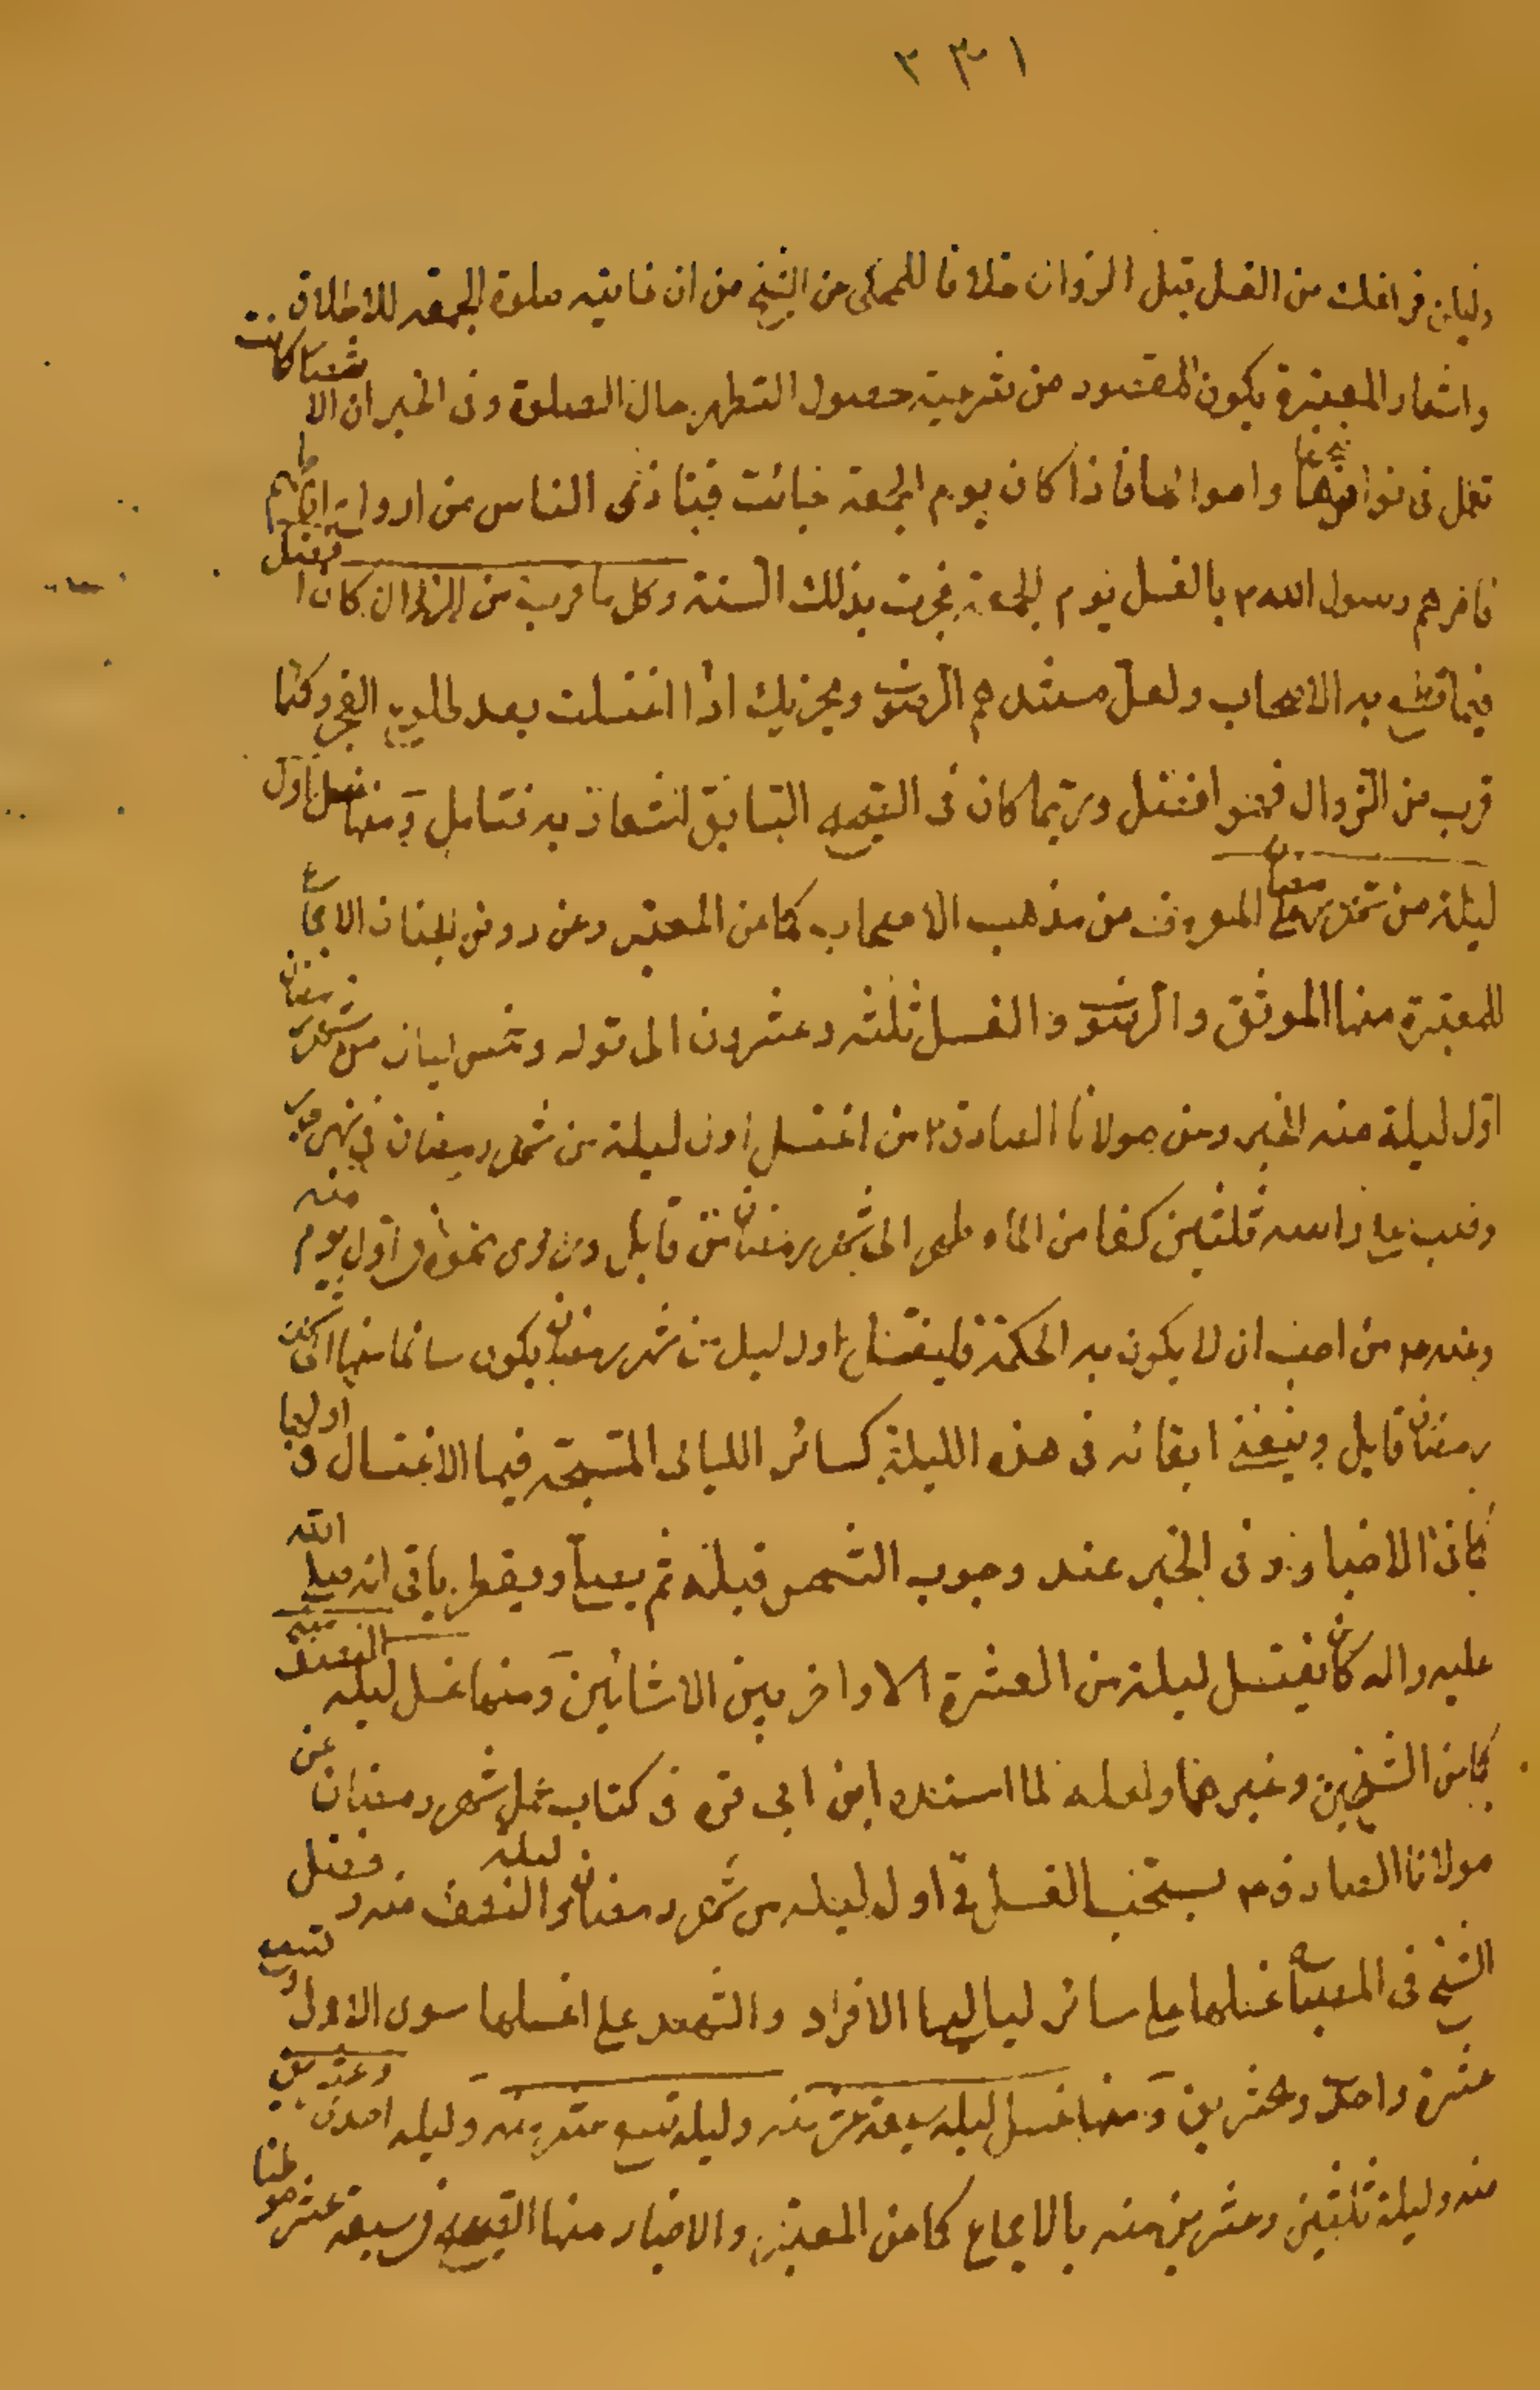 ١٣٢
وليكن فراغك من الغسل قبل الزوال خلافا للمحكى عن الشيخ من ان غايته صلوة الجمعه للاطلاق
واشعار المعتبرة بكون المقصود من شرعيته حصول التطهر حال الصلوة وفى الخبر ان الانصار كانت
تعمل فى نواضحها واموالها فاذا كان يوم الجمعة جائت فيتاذى الناس من ارواح اباطهم
فامرهم رسول الله ص بالغسل يوم الجمعة فجرت بذلك السنة وكل ما قرب من الزوال كان افضل
فيما قطع به الاصحاب ولعل مستندهم الرضوى ويجزيك اذا اغتسلت بعد طلوع الفجر وكلما
قرب من الزوال فهو افضل وربما كان فى الصحيح السابق اشعار به فتامل ومنها غسل اول
ليلة من شهر رمضان على المعروف من مذهب الاصحاب كما عن المعتبر وعن روض الجنان الاجماع
للمعتبرة منها الموثق والرضوى والغسل ثلثه وعشرون الى قوله وخمس ليال من شهر رمضان
اول ليلة منه الخبر وعن مولانا الصادق ع من اغتسل اول ليلة من شهر رمضان فى نهر جار
وصب على راسه ثلثين كفا من الماء طهر الى شهر رمضان من قابل ومن روى نحوه فى اول يوم منه
وعنه ع من احب ان لا يكون به الحكة فليغتسل اول ليلة من شهر رمضان يكون سالما منها الى
رمضان قابل وينبغى ايقاعه فى هذه الليلة كسائر الليالى المستحبة فيها الاغتسال فى اولها
كما فى الاخبار وفى الخبر عند وجوب الشمس قبيله ثم يصلى ويفطر ياتى انه صلى الله
عليه واله كان يغتسل ليلة من العشرة الاواخر بين الاشائين ومنها غسل ليله النصف منه
كما عن الشيخين وغيرهما ولعله لما اسنده ابن ابى قره فى كتاب عمل شهر رمضان عن
مولانا الصادق ع يستحب الغسل فى اول ليله من شهر رمضان وليلة النصف منه وفضل
الشيخ فى المصباح غسلها على سائر لياليها الافراد والشهيد على اغسالها سوى الاولى وتسع
عشرة واحدى وعشرين ومنها غسل ليله سبعة عشر منه وليلة تسع عشره منه وليله احدى وعشرين
منه وليلة ثلثين وعشرين منه بالاجماع كما عن المعتبر والاخبار منها الصحيح فى سبعة عشر